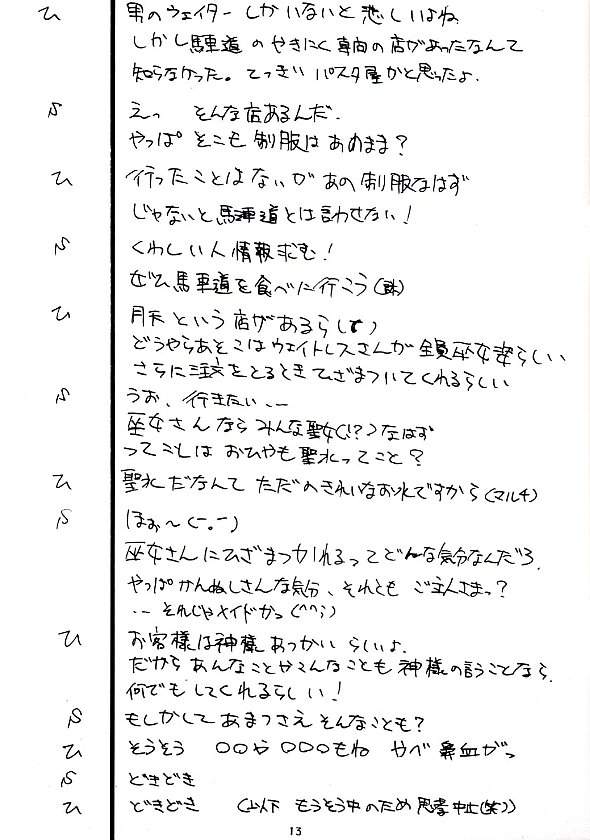 ひ 男のウェイターしかいないと悲しいよね
しかし馬車道のやきにく専向の店があったなんて
知らなかった。てっきりパスタ屋かと思ったよ.
S えっ そんな店あるんだ.
やっぱそこも制服はあのまま?
ひ 行ったことはないがあの制服なはず
じゃないと馬車道とは言わせない!
S くわしい人情報求む!
ぜひ馬車道を食べに行こう
ひ 月天という店があるらしい
どうやらあそこはウェイトレスさんが全員巫女姿らしい
さらに注文をとるときひざまづいてくれるらしい
S うお、行きたい、--
巫女さんならみんな聖女(!?)なはず
ってことはおひやも聖水ってこと?
ひ 聖水だなんてただのきれいなお水ですから(マルチ)
S ほお〜(-。-)
巫女さんにひざまづかれるってどんな気分なんだろ.
やっぱかんぬしさんな気分、それともご主人さまっ?
-- それじゃメイドかっ(^^;)
ひ お客様は神様あつかいらしいよ.
だからあんなことやこんなことも神様の言うことなら.
何でもしてくれるらしい!
S もしかしてあまつさえそんなことも?
ひ そうそう 〇〇や〇〇〇もね やべ鼻血がっ
S どきどき
ひ どきどき (以下 もうそう中のため思考中止(笑))
13